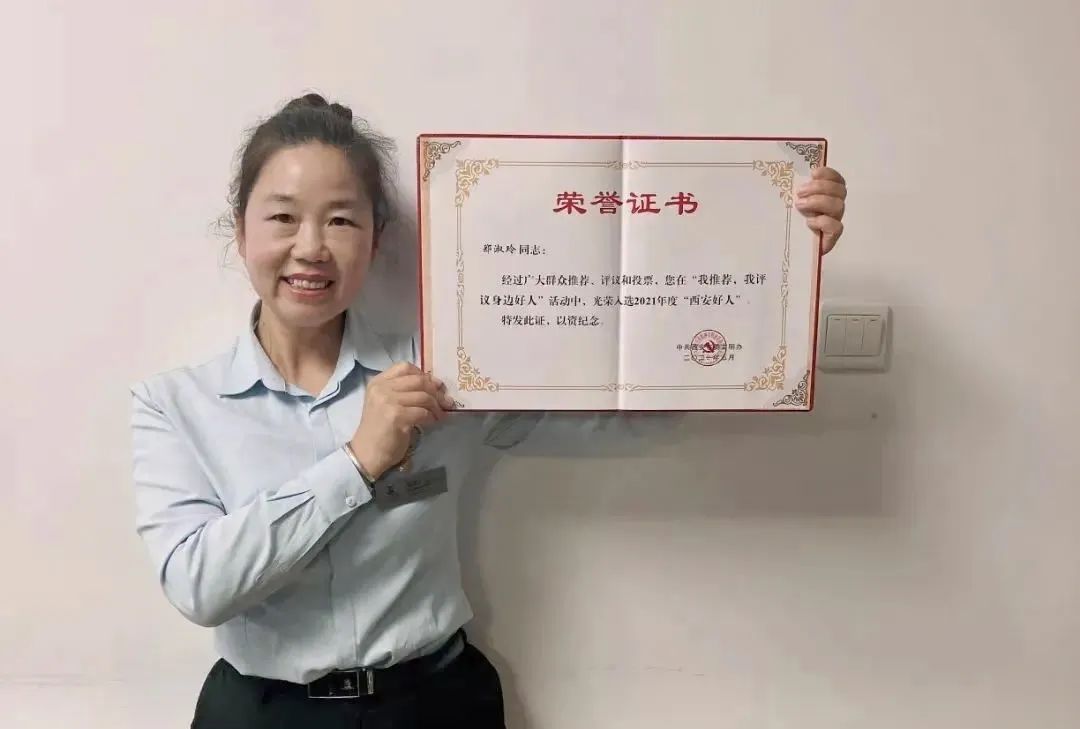 荣誉证书
郑淑玲同志：
经过广大群众推荐、评议和投票，您在“我推荐，我评
议身边好人”活动中，光荣入选2021年度“西安好人”。
特发此证，以资纪念。
中共西安市委文明办
二〇二一年 月